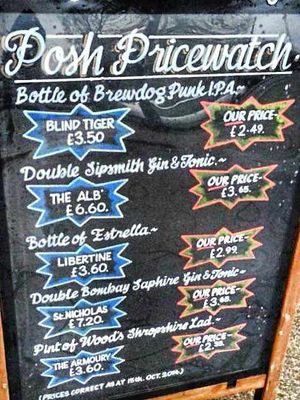 Posh Pricewatch.
Bottle of Brewdog Punk I.P.A.~
BLIND TIGER
£3.50
OUR PRICE~
£2.49.
Double Sipsmith Gin & Tonic.~
THE ALB'
£6.60.
OUR PRICE~
£3.65.
Bottle of Estrella.~
LIBERTINE
£3.60.
OUR PRICE~
£2.99.
Double Bombay Saphire Gin & Tonic~
St. NICHOLAS
£7.20.
OUR PRICE~
£3.65.
Pint of Wood's Shropshire Lad.~
THE ARMOURY
£3.60.
OUR PRICE~
(PRICES CORRECT AS AT 15th. OCT. 2014.)